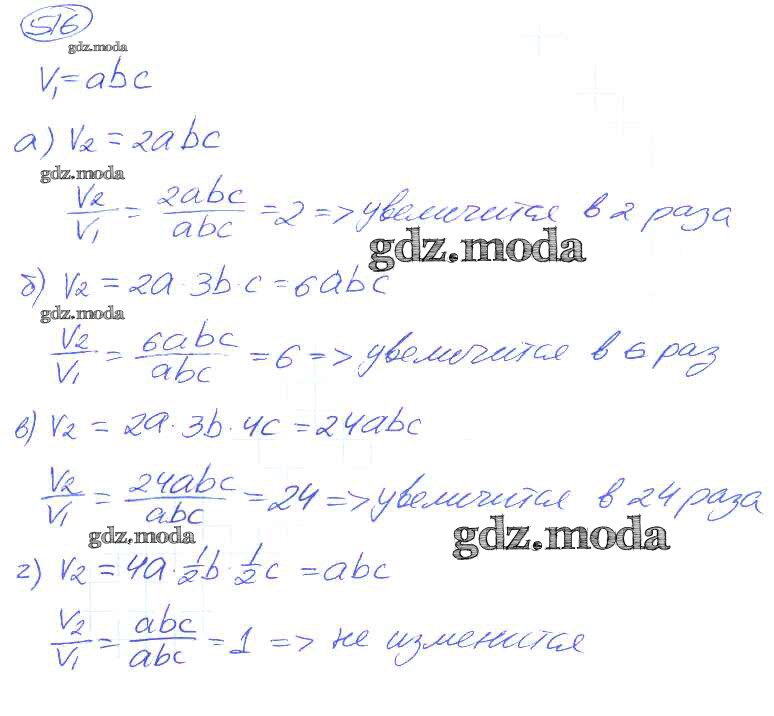 516
gdz.moda
V₁=abc
а) V₂ = 2abc
gdz.moda
V₂/V₁ = 2abc/abc = 2 => увеличится в 2 раза
gdz.moda
б) V₂ = 2a·3b·c = 6abc
gdz.moda
V₂/V₁ = 6abc/abc = 6 => увеличится в 6 раз
в) V₂ = 2a·3b·4c = 24abc
V₂/V₁ = 24abc/abc = 24 => увеличится в 24 раза
gdz.moda
gdz.moda
г) V₂ = 4a·½b·½c = abc
V₂/V₁ = abc/abc = 1 => не изменится